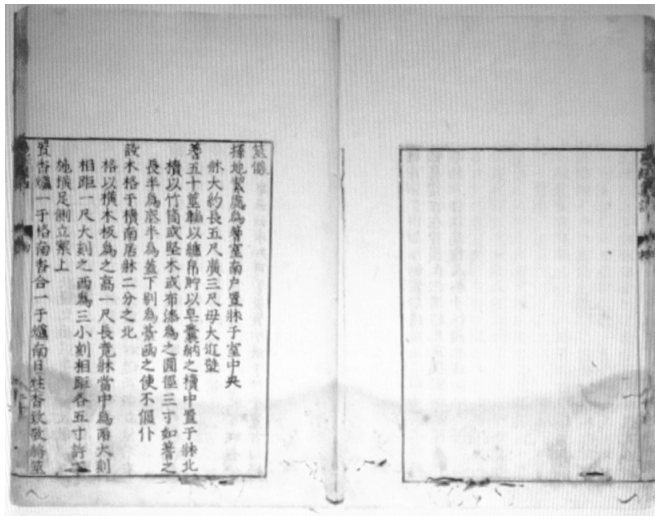 筮儀
擇地潔處為蓍室南戶置牀于室中央
牀大約長五尺廣三尺毋大近壁
蓍五十莖韜以纁帛貯以皂囊納之櫝中置于牀北
櫝以竹筒或堅木或布漆為之圓徑三寸如蓍之
長半為底半為蓋下别為臺函之使不偃仆
設木格于櫝南居牀二分之北
格以橫木板為之高一尺長竟牀當中為兩大刻
相距一尺大刻之西為三小刻相距各五寸許下
施橫足側立案上
置香爐一于格南香合一于爐南日炷香致敬將筮